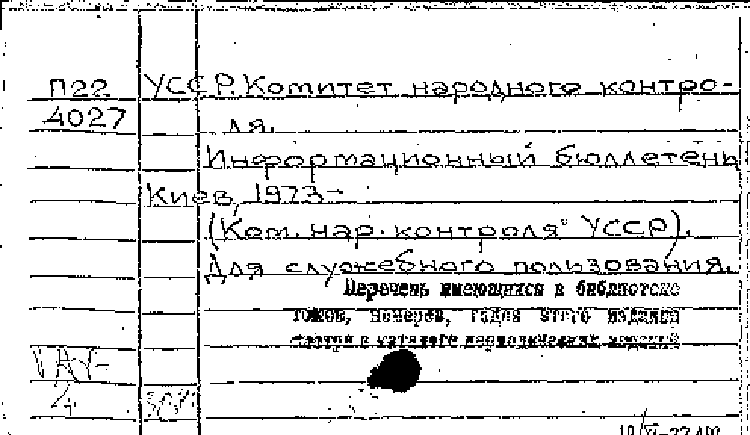 П22 УССР. Комитет народного контро-
4027 ля.
Информационный бюллетень
Киев, 1973-
(Ком. нар. контроля УССР).
Для служебного пользования.
Перечень имеющихся в библиотеке
томов, номеров, годов этого издания
смотри в каталоге периодических изданий